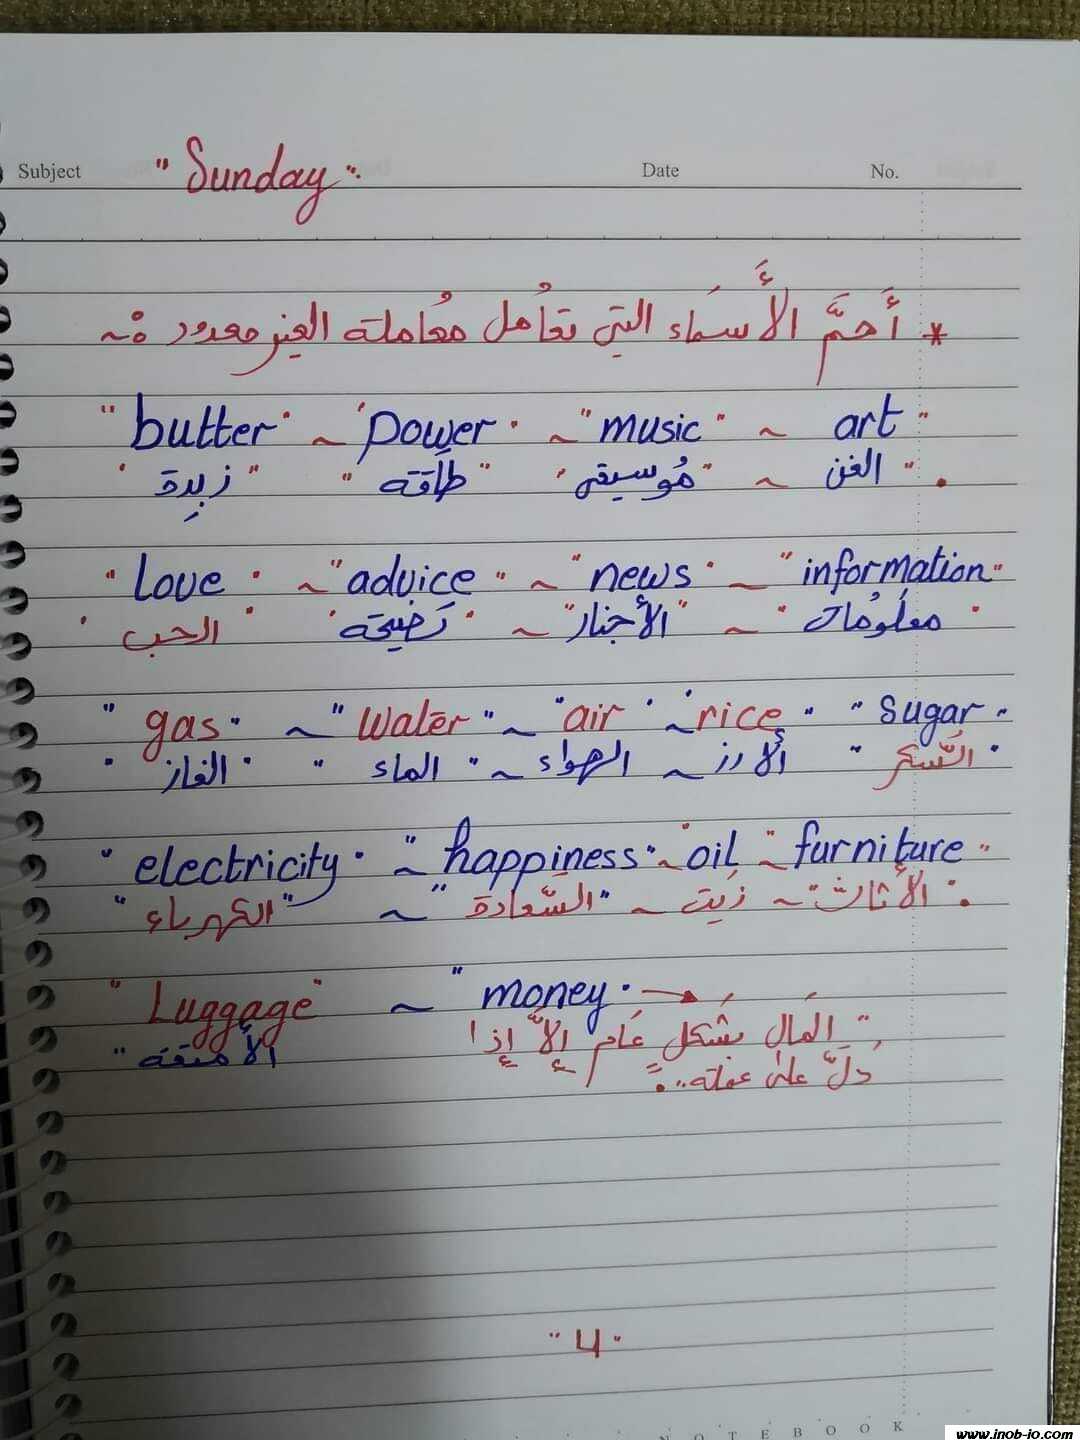 Subject " Sunday " Date No.
* أَهمَّ الأَسمَاء التي تعُامل معُاملة الغير معدود :~
" butter " ~ " power " ~ " music " ~ art "
" زبدِة " " طاقة " " مُوسيقى " ~ " الفن " .
" Love " ~ " advice " ~ " news " ~ " information "
" الحب " " نَصيحة " ~ " الأخبار " ~ " معلوُمات "
" gas " ~ " Water " ~ " air " ~ " rice " " Sugar "
" الغاز " " الماء " ~ الهواء ~ الأرز " السَّكر "
" electricity " ~ " happiness " ~ " oil " ~ " furniture "
" الكهرباء " ~ " السَّعادة " ~ زيَت ~ " الأثاث " .
" Luggage " ~ " money " →
" الأمتعة " " المَال بشَكل عَام إلاَّ إذا
دَلَّ على عملة .. "
" 4 "
NOTEBOOK
www.inob-io.com